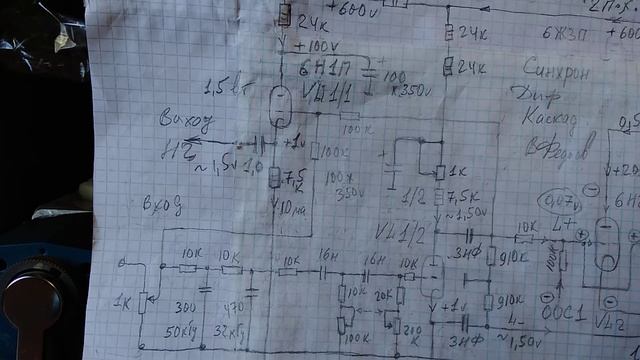 +600v
2П.К.
24К
24К
6Ж3П
+600
+100v
6Н1П
V41/1
100
x 350v
Синхрон
Диф
Каскад
1,5 вт
Выход
НГ
100К
+1v
~1,5v
1,0
7,5
К
100К
100x
350v
1К
10ма
1/2
7,5К
~1,50v
0,07v
+20
6Н
Вход
V41/2
3НФ
10К
4+
100К
910К
10К
10К
10К
16Н
16Н
10К
1К
300
50кГц
470
32кГц
10К
100К
20К
+1v
3НФ
910К
ООС1
4-
~1,50v
V42